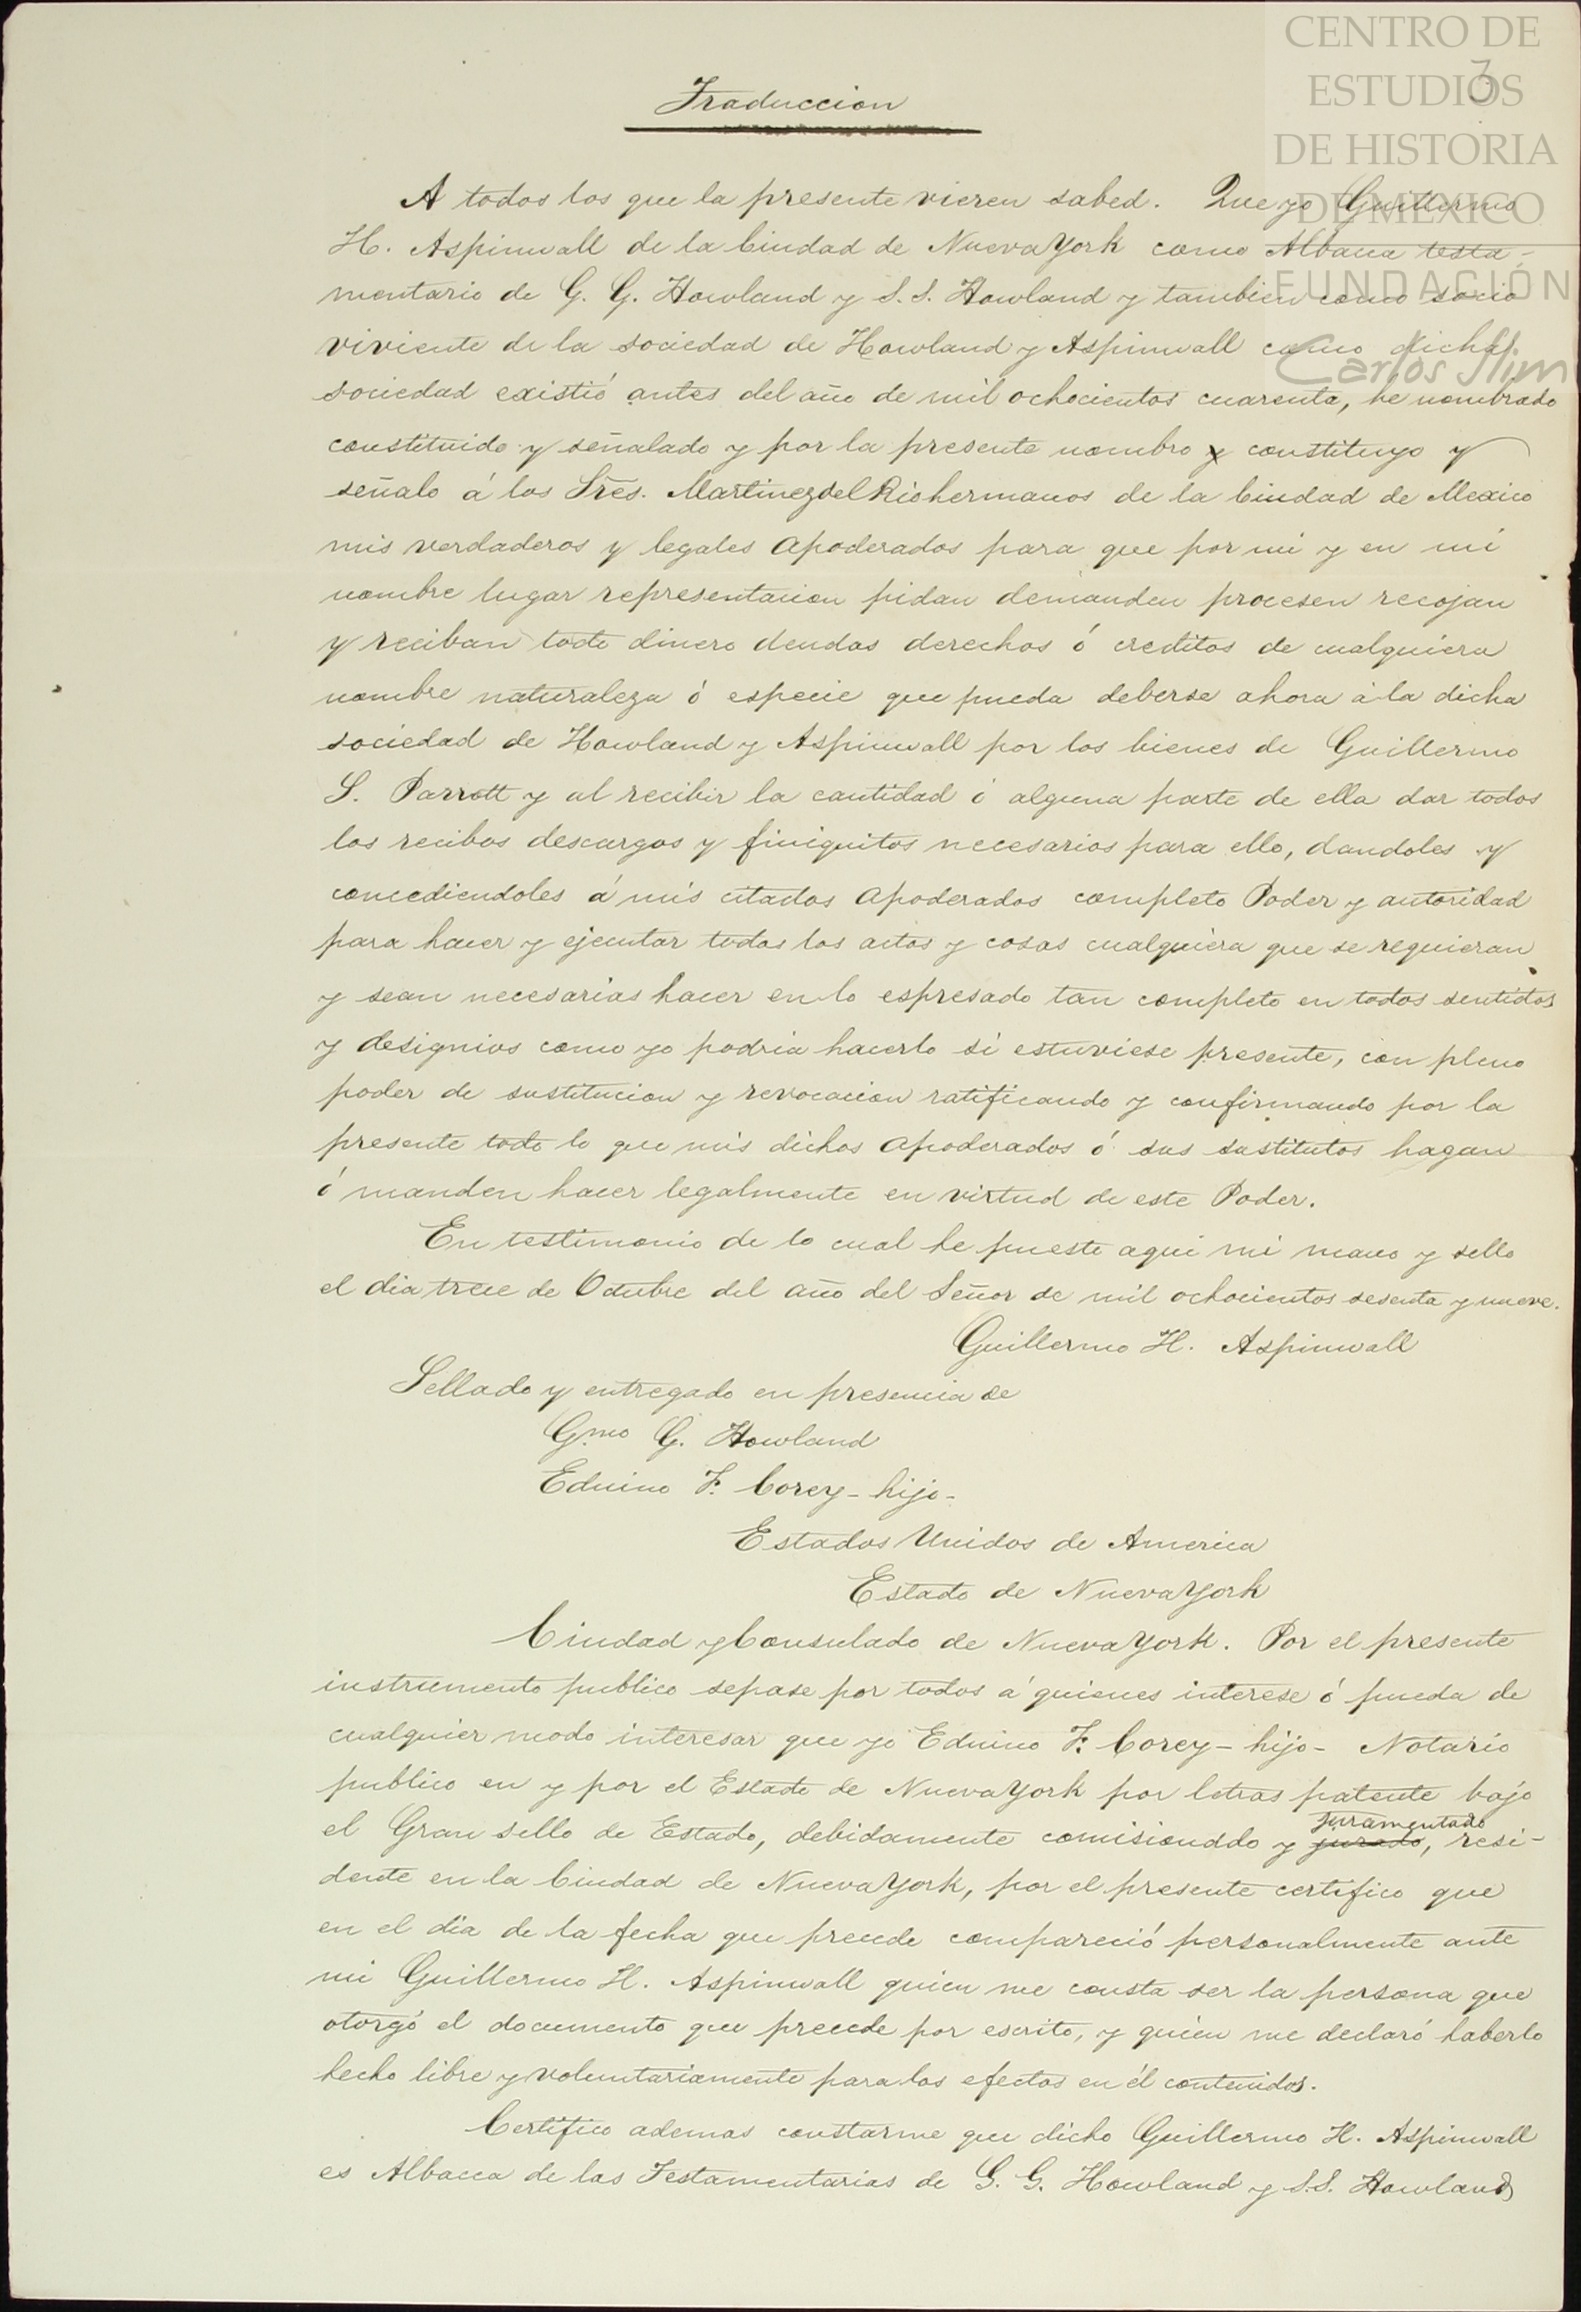 CENTRO DE
ESTUDIOS
DE HISTORIA
DE MEXICO
FUNDACIÓN
Carlos Slim
3
Traduccion
A todos los que la presente vieren sabed. Que yo Guillermo
H. Aspinwall de la Ciudad de Nueva York como Albacea testa-
mentario de G. G. Howland y S. S. Howland y tambien como socio
viviente de la sociedad de Howland y Aspinwall como dicha
sociedad existió antes del año de mil ochocientos cuarenta, he nombrado
constituido y señalado y por la presente nombro y constituyo y
señalo á los Sres. Martinez del Rio hermanos de la Ciudad de Mexico
mis verdaderos y legales Apoderados para que por mi y en mi
nombre lugar representacion pidan demanden procesen recojan
y reciban todo dinero deudas derechos ó creditos de cualquiera
nombre naturaleza ó especie que pueda deberse ahora á la dicha
sociedad de Howland y Aspinwall por los bienes de Guillermo
S. Parrott y al recibir la cantidad ó alguna parte de ella dar todos
los recibos descargos y finiquitos necesarios para ello, dandoles y
concediendoles á mis citados Apoderados completo Poder y autoridad
para hacer y ejecutar todos los actos y cosas cualquiera que se requieran
y sean necesarias hacer en lo espresado tan completo en todos sentidos
y designios como yo podria hacerlo si estuviese presente, con pleno
poder de sustitucion y revocacion ratificando y confirmando por la
presente todo lo que mis dichos Apoderados ó sus sustitutos hagan
ó manden hacer legalmente en virtud de este Poder.
En testimonio de lo cual he puesto aqui mi mano y sello
el dia trece de Octubre del año del Señor de mil ochocientos sesenta y nueve.
Guillermo H. Aspinwall
Sellado y entregado en presencia de
Gmo G. Howland
Eduino F. Corey - hijo -
Estados Unidos de America
Estado de Nueva York
Ciudad y Consulado de Nueva York. Por el presente
instrumento publico sepase por todos á quienes interese ó pueda de
cualquier modo interesar que yo Eduino F. Corey - hijo - Notario
publico en y por el Estado de Nueva York por letras patente bajo
el Gran sello de Estado, debidamente comisionddo y jurado, juramentado resi-
dente en la Ciudad de Nueva York, por el presente certifico que
en el dia de la fecha que precede compareció personalmente ante
mi Guillermo H. Aspinwall quien me consta ser la persona que
otorgó el documento que precede por escrito, y quien me declaró haberlo
hecho libre y voluntariamente para los efectos en él contenidos.
Certifico ademas constarme que dicho Guillermo H. Aspinwall
es Albacea de las Testamentarias de G. G. Howland y S.S. Howland